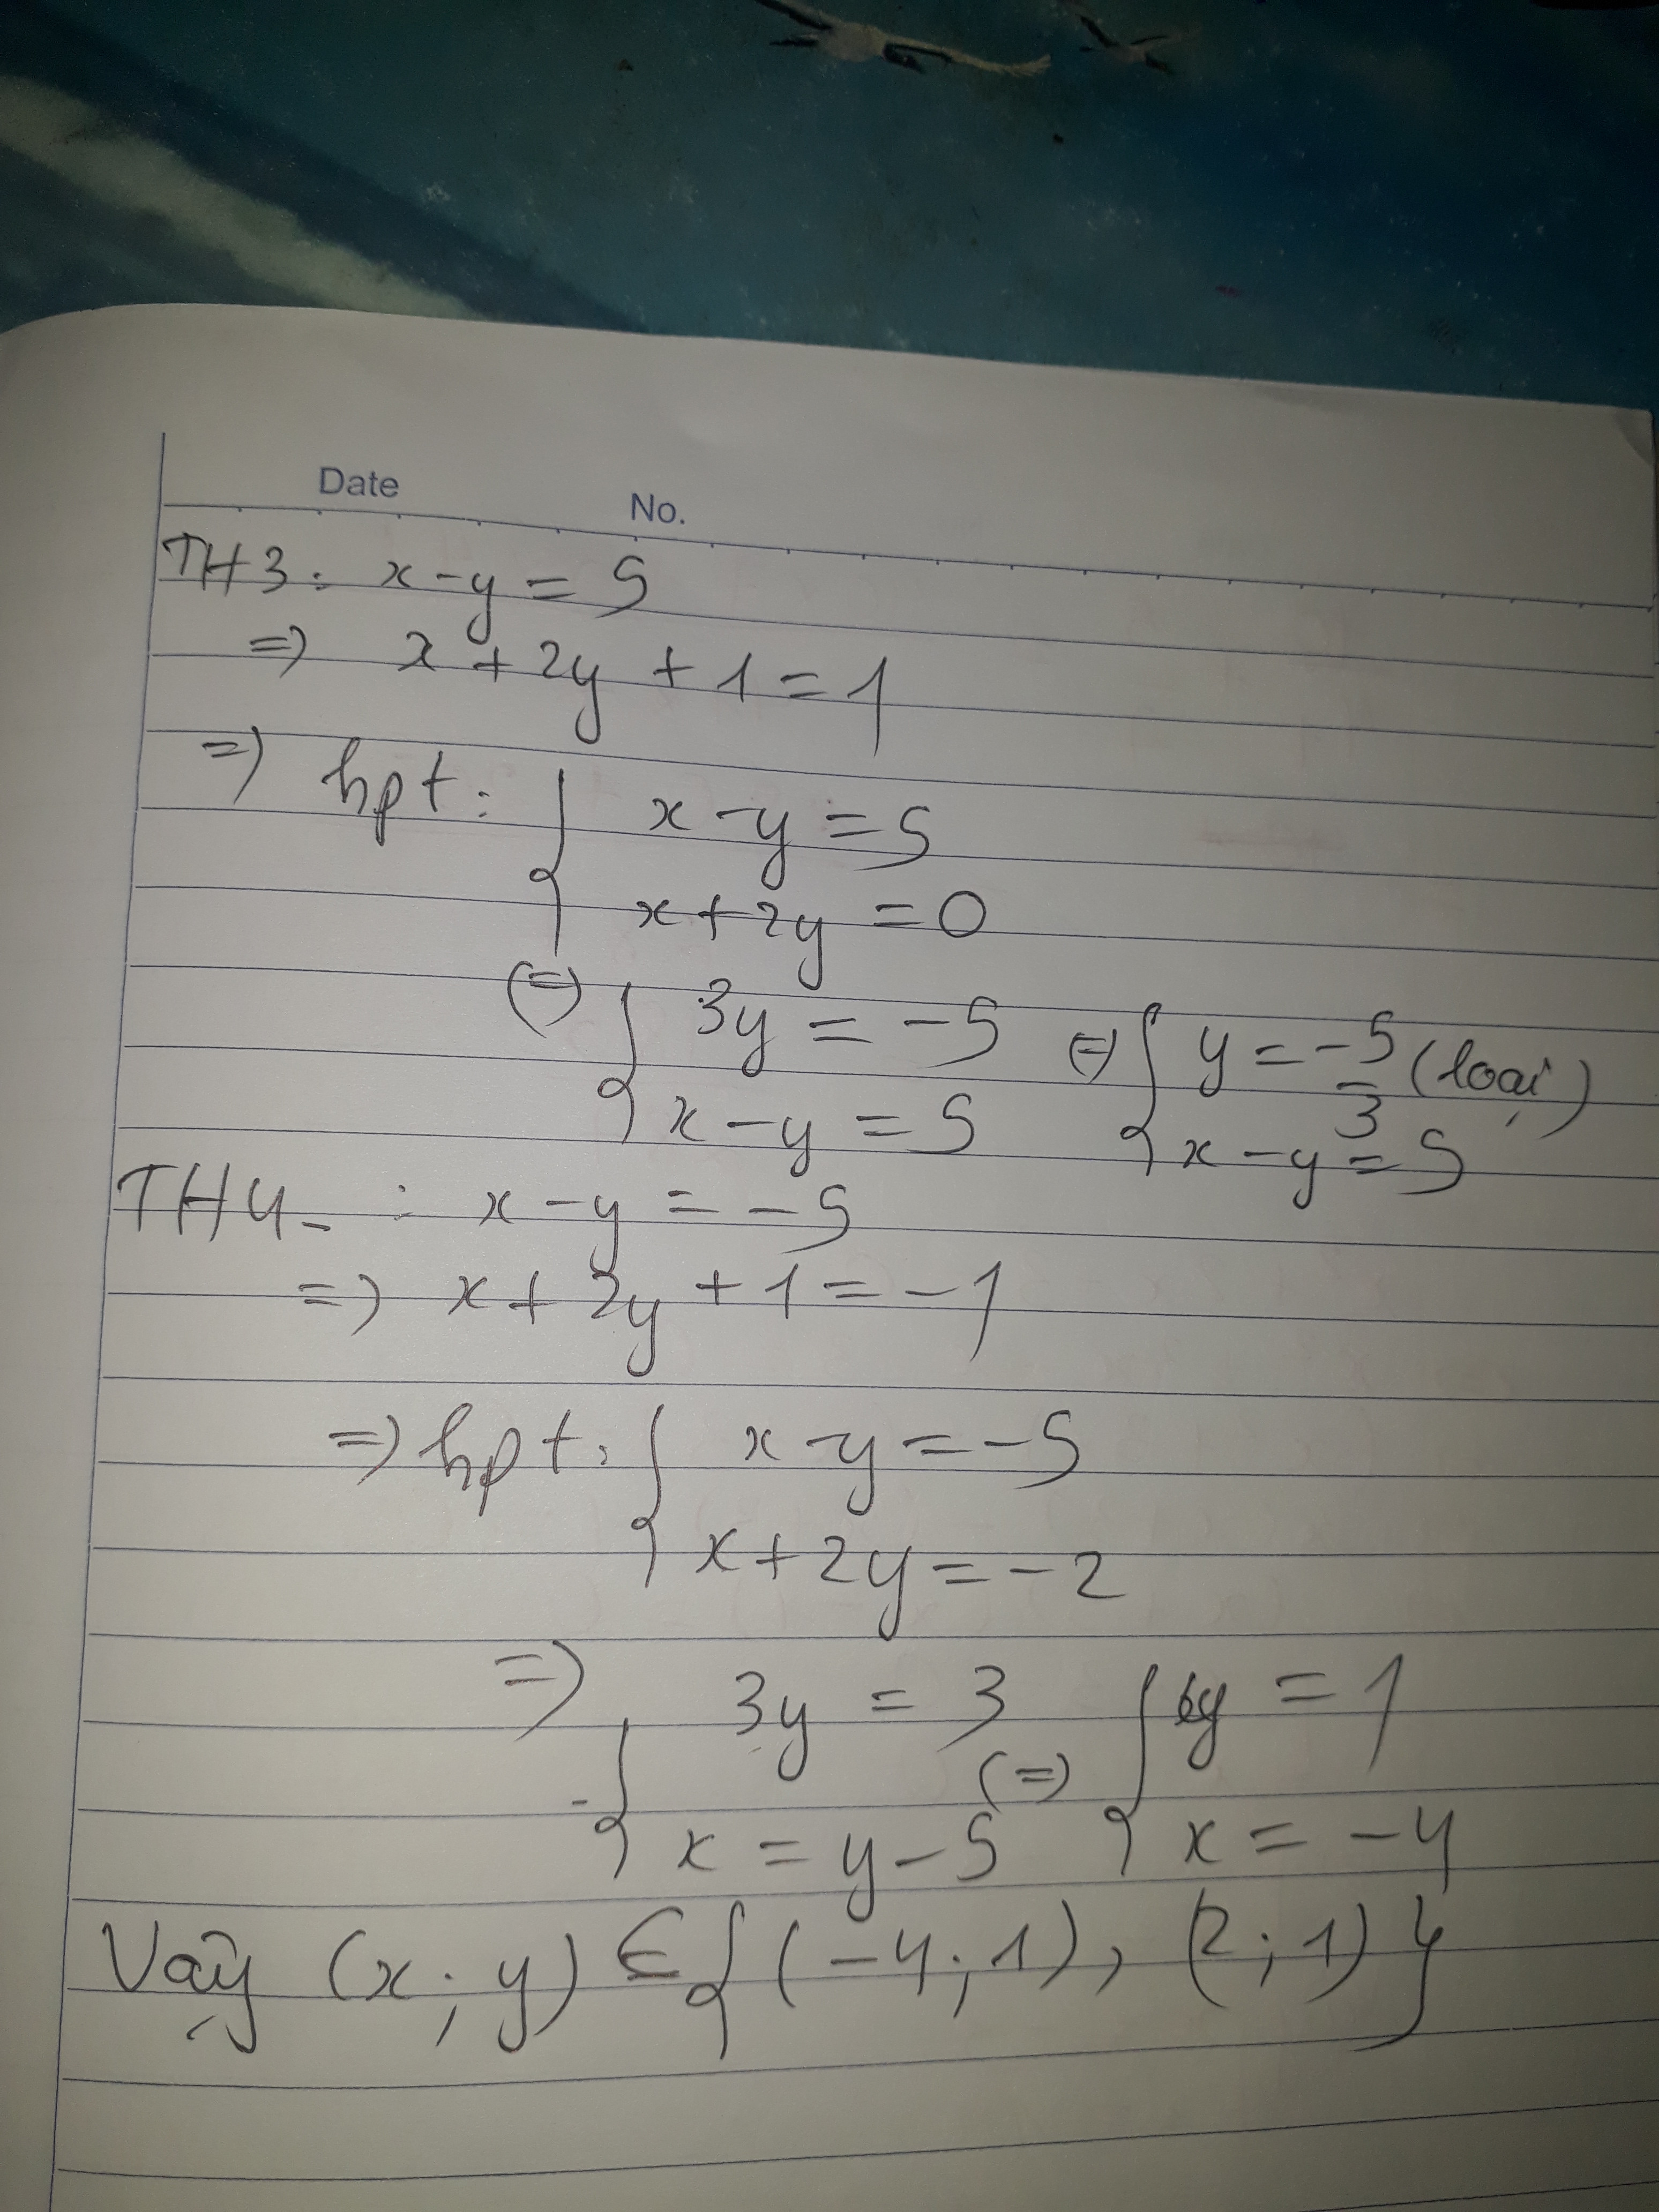 Date No.
TH3: x-y=5
=) x+2y+1=1
=) hpt: { x-y=5
x+2y=0
(=) { 3y=-5 (=) { y=-5/3 (loại)
x-y=5 x-y=5
TH4: x-y=-5
=) x+2y+1=-1
=) hpt: { x-y=-5
x+2y=-2
=) { 3y=3 (=) { y=1
x=y-5 x=-4
Vậy (x;y) ∈ {(-4;1), (2;1)}